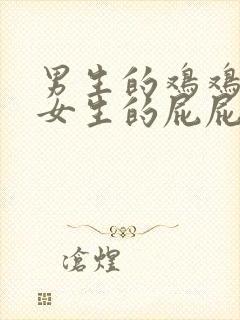 男生的鸡鸡
女生的屁屁
沧煌